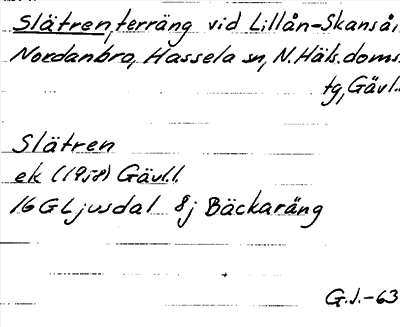 Slätren, terräng vid Lillån-Skansån
Nordanbro, Hassela sn, N. Häls. doms.
tg, Gävl.
Slätren
ek (1958) Gävl.l.
16G Ljusdal 8j Bäckaräng
G.J.-63